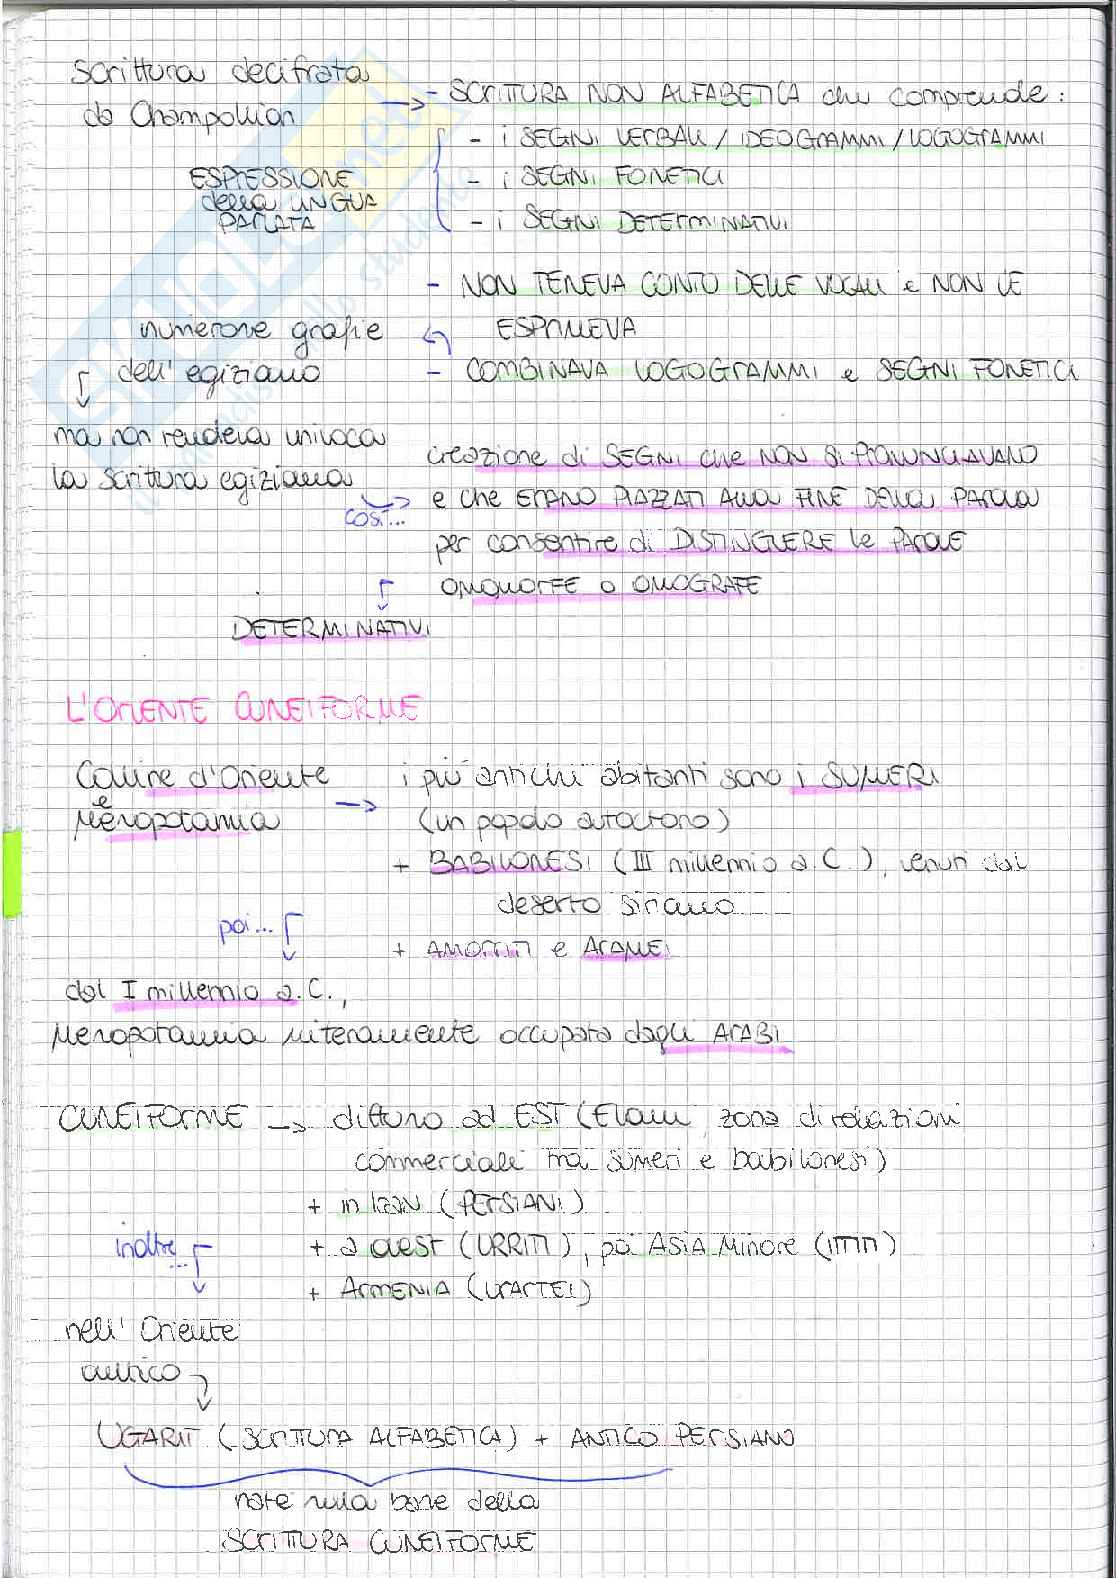 Scrittura decifrata
da Champollion
→ - SCRITTURA NON ALFABETICA che comprende:
- i SEGNI VERBALI / IDEOGRAMMI / LOGOGRAMMI
- i SEGNI FONETICI
- i SEGNI DETERMINATIVI
ESPRESSIONE
della LINGUA
PARLATA
- NON TENEVA CONTO DELLE VOCALI e NON LE
ESPRIMEVA
- COMBINAVA LOGOGRAMMI e SEGNI FONETICI
numerose grafie
dell'egiziano
ma non rendeva univoca
la scrittura egiziana
così...
creazione di SEGNI che NON SI PRONUNCIAVANO
e che ERANO PIAZZATI ALLA FINE DELLA PAROLA
per consentire di DISTINGUERE le PAROLE
OMOMORFE o OMOGRAFE
DETERMINATIVI
L'ORIENTE CUNEIFORME
Colline d'Oriente
e
Mesopotamia
→ i più antichi abitanti sono i SUMERI
(un popolo autoctono)
+ BABILONESI (III millennio a.C.), venuti dal
deserto siriano
+ AMORRITI e ARAMEI
poi...
dal I millennio a.C.,
Mesopotamia interamente occupata dagli ARABI
CUNEIFORME → diffuso ad EST (Elam, zona di relazioni
commerciali tra sumeri e babilonesi)
+ in IRAN (PERSIANI)
+ a OVEST (URRITI), poi ASIA Minore (ITTITI)
+ ARMENIA (URARTEI)
inoltre
...
nell'Oriente
antico
UGARIT (SCRITTURA ALFABETICA) + ANTICO PERSIANO
nate sulla base della
SCRITTURA CUNEIFORME